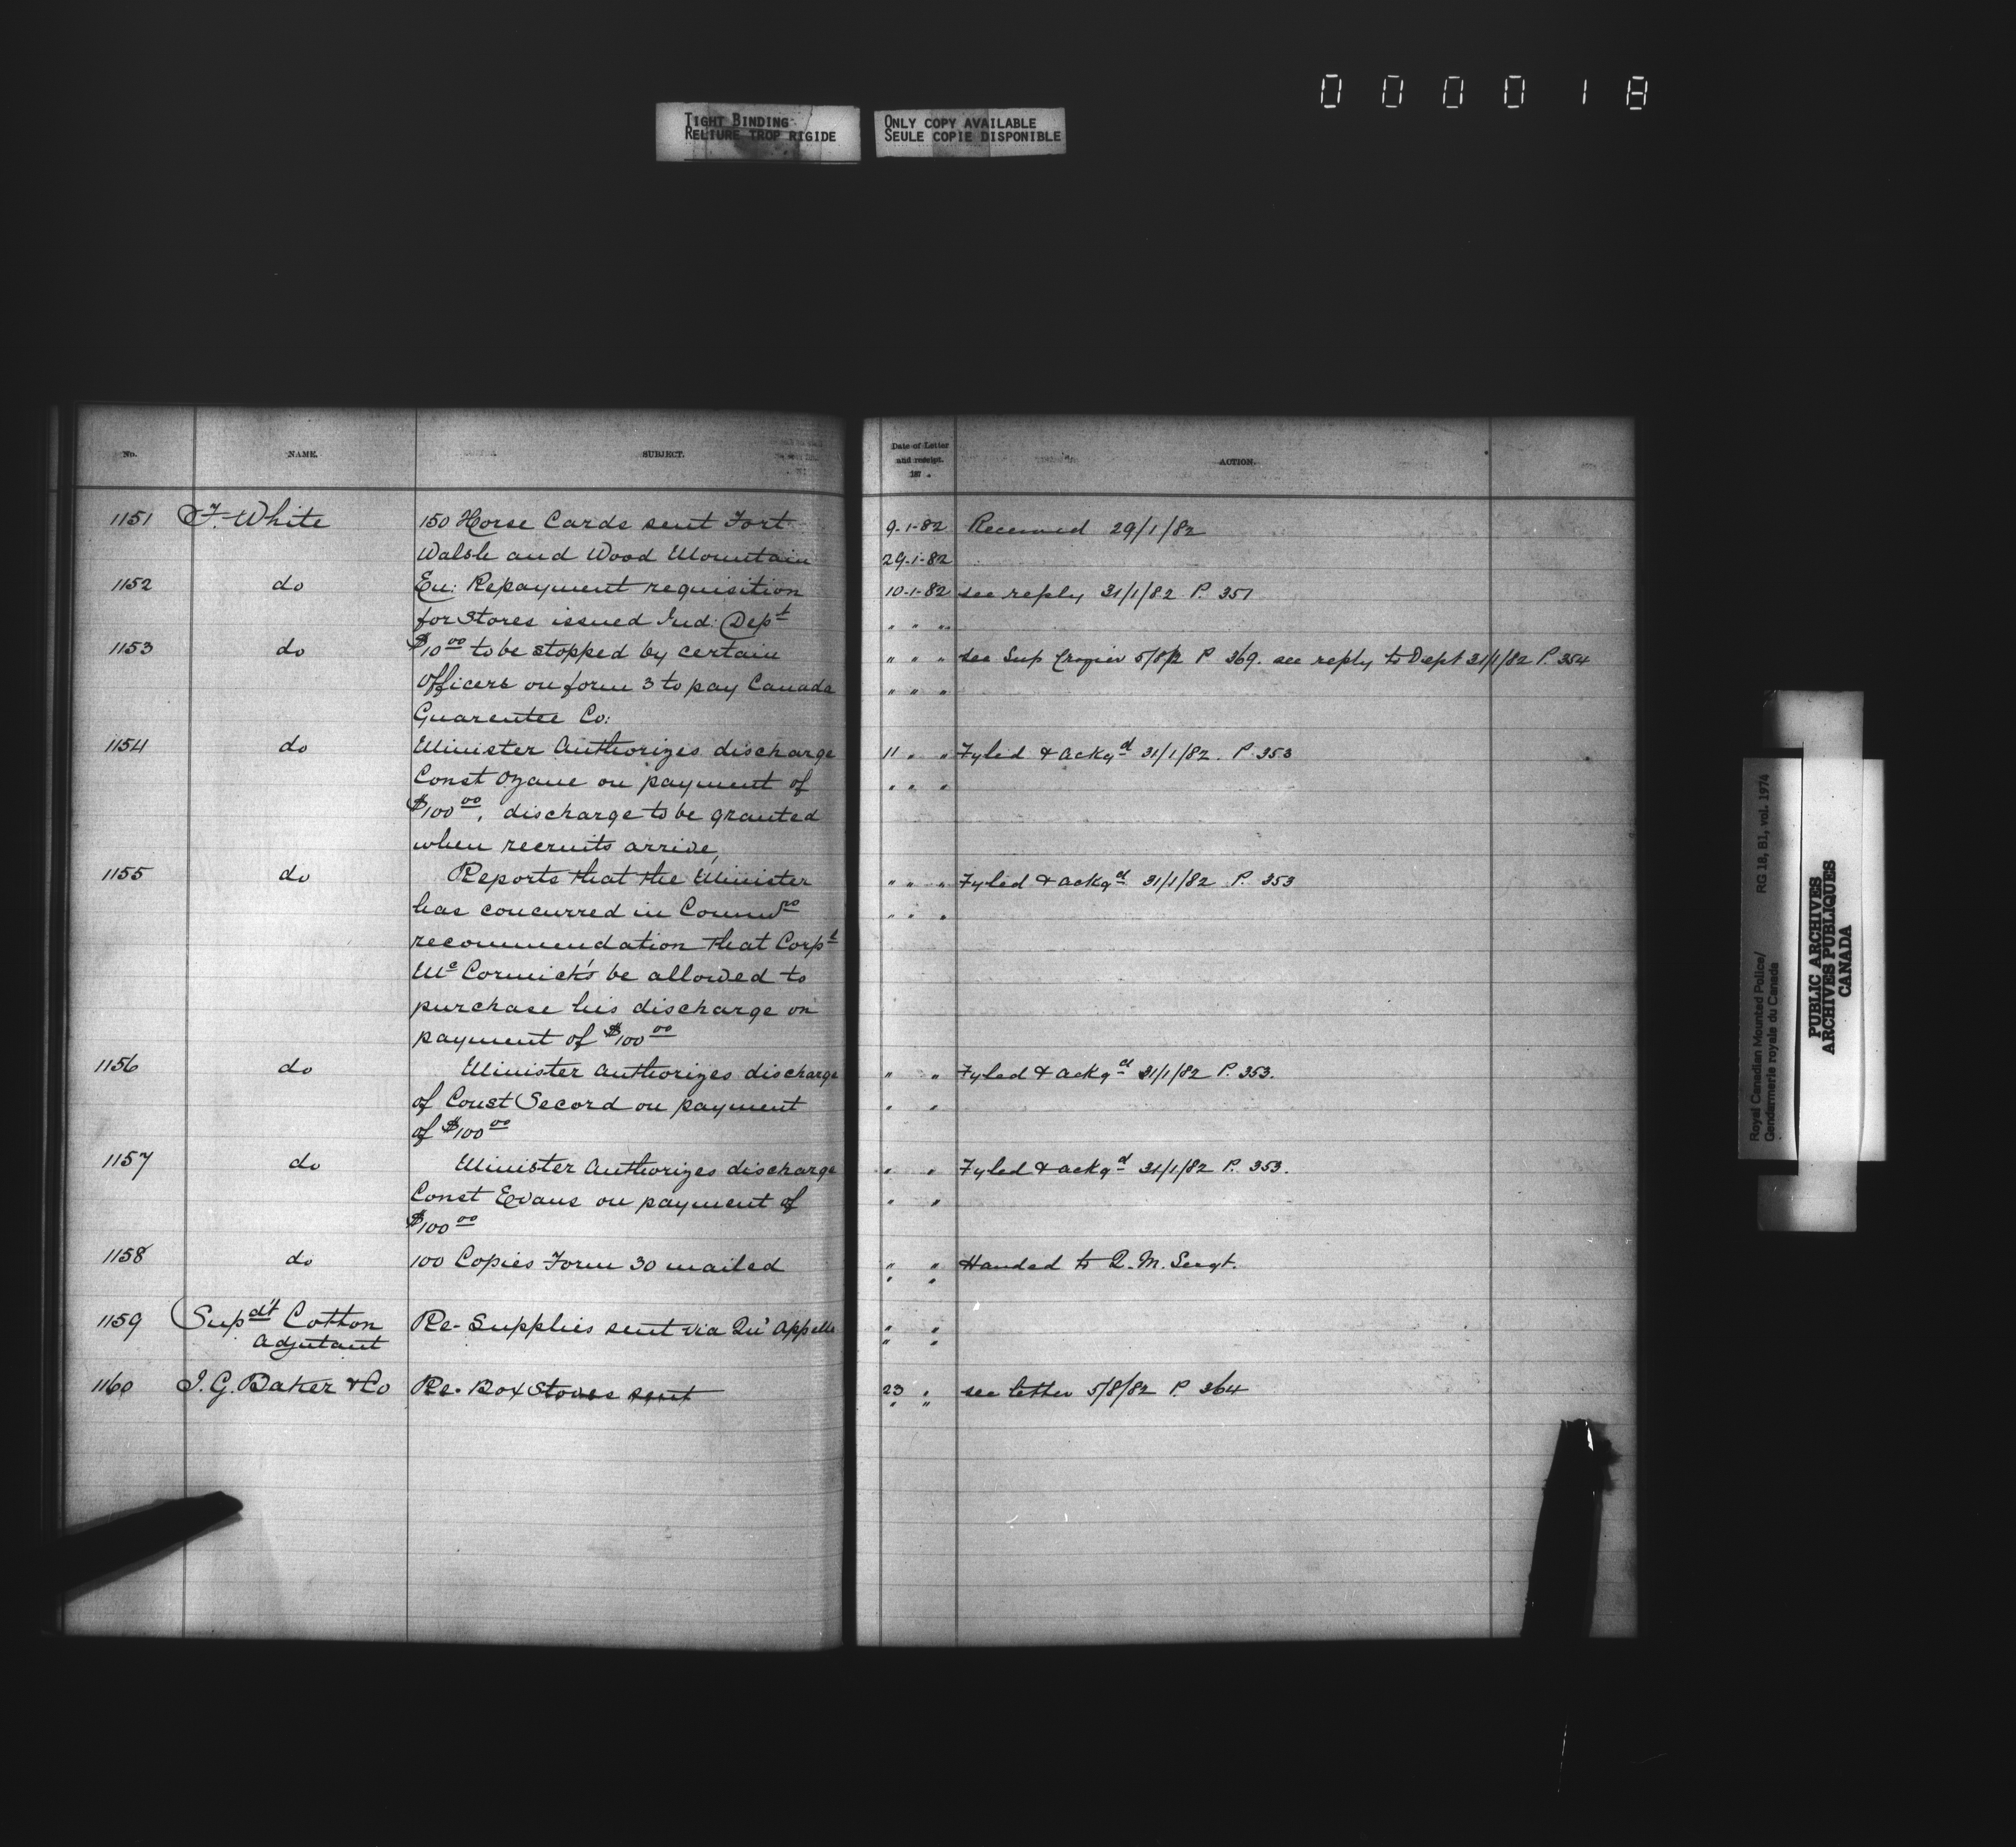 0 0 0 0 1 8
TIGHT BINDING
RELIURE TROP RIGIDE
ONLY COPY AVAILABLE
SEULE COPIE DISPONIBLE
No. NAME. SUBJECT. Date of Letter and receipt. 187 . ACTION.
1151 F. White 150 Horse Cards sent Fort 9-1-82 Received 29/1/82
Walsh and Wood Mountain 29-1-82
1152 do En: Repayment requisition 10-1-82 see reply 31/1/82 P. 351
for Stores issued Ind: Dept " " "
1153 do $10 00 to be stopped by certain " " " see Sup Crozier 5/8/2 P 369. see reply to Dept 31/1/82 P. 354
Officers on form 3 to pay Canada " " "
Guarentee Co:
1154 do Minister Authorizes discharge 11 " " Fyled & ackgd 31/1/82. P. 353
Const Ozane on payment of " " "
$100 00, discharge to be granted
when recruits arrive,
1155 do Reports that the Minister " " " Fyled & ackgd 31/1/82 P. 353
has concurred in Commrs " " "
recommendation that Corpl
Mc Cormick's be allowed to
purchase his discharge on
payment of $100 00
1156 do Minister Authorizes discharge " " Fyled & ackgd 31/1/82 P. 353.
of Const Secord on payment " "
of $100 00
1157 do Minister Authorizes discharge " " Fyled & ackgd 31/1/82 P. 353.
Const Evans on payment of " "
$100 00
1158 do 100 Copies Form 30 mailed " " Handed to Q. M. Sergt.
" "
1159 Supdt Cotton Re- Supplies sent via Qu'Appelle " "
Adjutant " "
1160 I. G. Baker & Co Re. Box Stoves sent 23 " see letter 5/8/82 P. 364
" "
Royal Canadian Mounted Police/ RG 18, B1, vol. 1974
Gendarmerie royale du Canada
PUBLIC ARCHIVES
ARCHIVES PUBLIQUES
CANADA